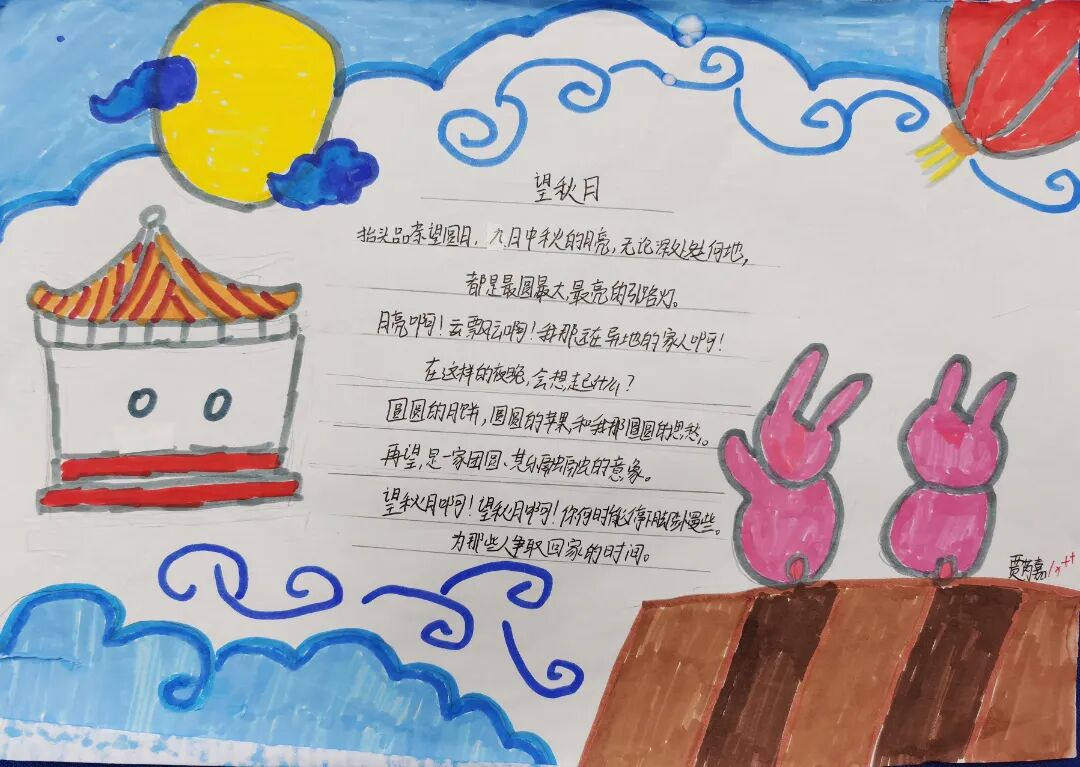 望秋月
抬头品茶望圆月，九月中秋的月亮，无论深处何地，
都是最圆最大，最亮的引路灯。
月亮啊！云飘云啊！我那还在异地的家人啊！
在这样的夜晚，会想起什么？
圆圆的月饼，圆圆的苹果，和我那圆圆的思愁。
再望，是一家团圆、其乐融融的意象。
望秋月啊！望秋月啊！你何时能停下脚步慢些。
为那些人争取回家的时间。